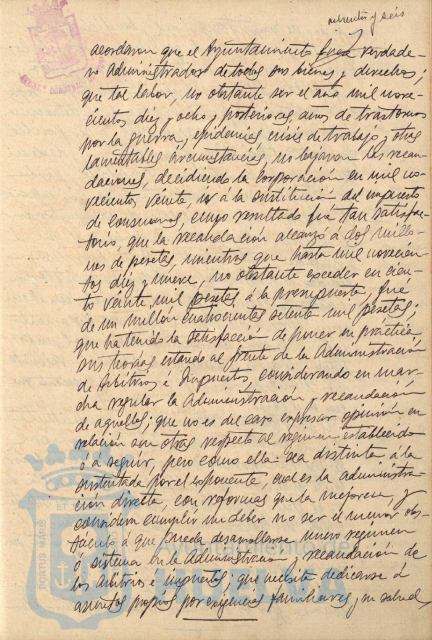 ochenta y seis
acordaron que el Ayuntamiento fuese verdade-
ro administrador de todos sus bienes y derechos;
que tal labor, no obstante ser el año mil nove-
cientos diez y ocho y posteriores, años de trastornos
por la guerra, epidemias crisis de trabajo y otras
lamentables circunstancias, no bajaron las recau-
daciones, decidiendo la Corporación en mil no-
vecientos veinte, ir á la sustitución del impuesto
de consumos, cuyo resultado fué tan satisfac-
torio, que la recaudación alcanzó á dos millo-
nes de pesetas, mientras que hasta mil novecien-
tos diez y nueve, no obstante exceder en cien-
to veinte mil pesetas á lo presupuesto, fué
de un millón cuatrocientas setenta mil pesetas;
que ha tenido la satisfacción de poner en práctica
sus teorías estando al frente de la Administración
de Arbitrios é Impuestos, considerando en mar-
cha regular la Administración y recaudación
de aquellos; que no es del caso expresar opinión en
relación con otras respecto al régimen establecido
ó á seguir, pero como ella sea distinta á la
sustentada por el exponente, cual es la administra-
ción directa, con reformas que la mejoren, y
considera cumplir un deber no ser el menor obs-
táculo á que pueda desarrollarse nuevo régimen
ó sistema en la Administración y recaudación de
los arbitrios é impuestos; que necesita dedicarse á
asuntos propios por exigencias familiares y su salud
PORTUS MARIS ET